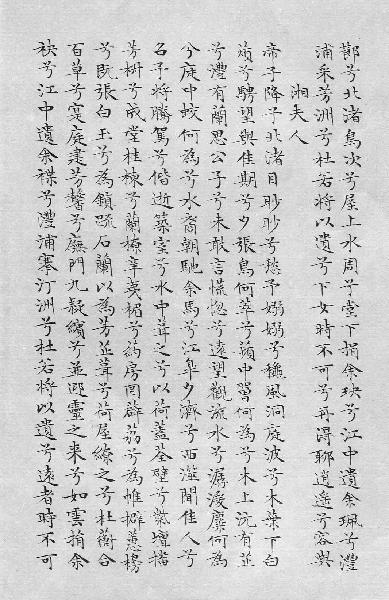 節兮北渚鳥次兮屋上水周兮堂下捐余玦兮江中遺余珮兮澧
浦采芳洲兮杜若將以遺兮下女時不可兮再得聊逍遙兮容與
湘夫人
帝子降兮北渚目眇眇兮愁予嫋嫋兮穐風洞庭波兮木葉下白
薠兮騁望與佳期兮夕張鳥何萃兮蘋中罾何為兮木上沅有芷
兮澧有蘭思公子兮未敢言慌惚兮遠望觀流水兮潺湲麋何為
兮庭中蛟何為兮水裔朝馳余馬兮江皋夕濟兮西澨聞佳人兮
召予將騰駕兮偕逝築室兮水中葺之兮以荷蓋荃壁兮紫壇播
芳椒兮成堂桂棟兮蘭橑辛夷楣兮葯房罔薜荔兮為帷擗蕙櫋
兮既張白玉兮為鎮疏石蘭以為芳芷葺兮荷屋繚之兮杜蘅合
百草兮實庭建芳馨兮廡門九嶷繽兮並迎靈之來兮如雲捐余
袂兮江中遺余褋兮澧浦搴汀洲兮杜若將以遺兮遠者時不可